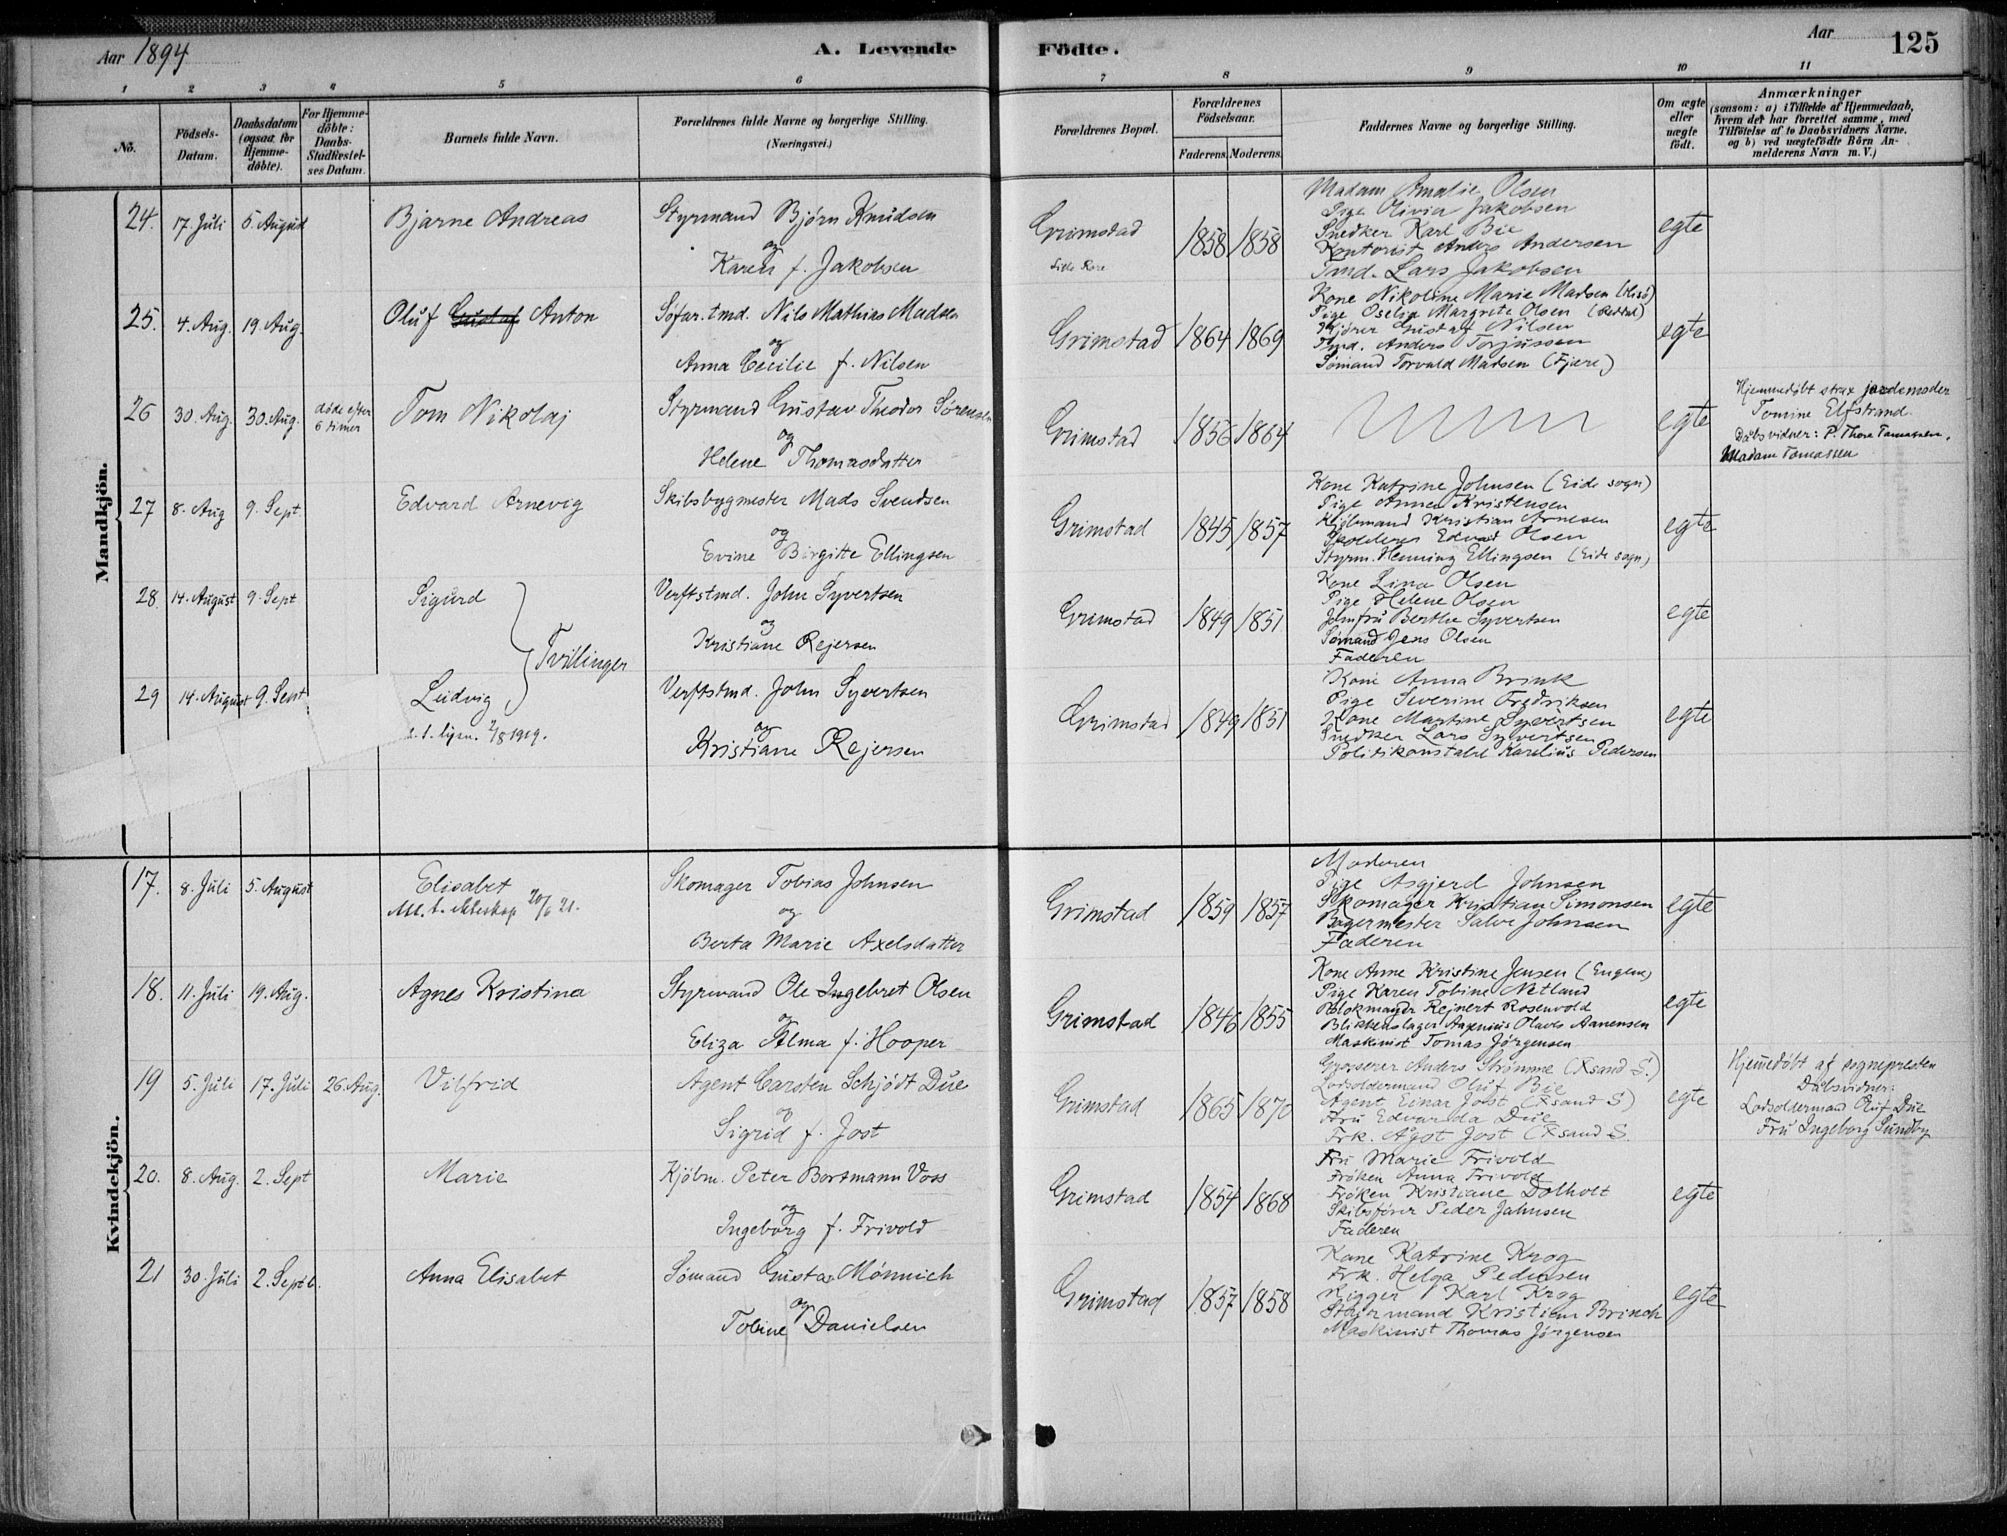 Aar 1894
A. Levende
Födte.
Aar
125
1 2 3 4 5 6 7 8 9 10 11
No.
Födsels-Datum.
Daabsdatum (ogsaa for Hjemme-döbte).
For Hjemme-döbte: Daabs-Stadfæstel-ses Datum.
Barnets fulde Navn.
Forældrenes fulde Navne og borgerlige Stilling.
(Næringsvei.)
Forældrenes Bopæl.
Forældrenes Födselsaar.
Faderens. Moderens.
Faddernes Navne og borgerlige Stilling.
Om ægte eller uægte födt.
Anmærkninger
(saasom: a) i Tilfælde af Hjemmedaab, hvem der har forrettet samme, med Tilföielse af to Daabsvidners Navne, og b) ved uægtefödte Börn An-melderens Navn m. V.)
Mandkjön.
24. 17. Juli 5. August Bjarne Andreas
Styrmand Bjørn Knudsen
og
Karen f. Jakobsen
Grimstad
1858 1858
Madam Amalie Olsen
Pige Olivia Jakobsen
Snedker Karl Bie
Kontorist Anders Andersen
Tmd. Lars Jakobsen
egte
25. 4. Aug. 19. Aug. Oluf Gustaf Anton
Søfar. tmd. Nils Mathias Madsen
og
Anna Cecilie f. Nilsen
Grimstad 1864 1869
Kone Nikoline Marie Madsen (Hisø)
Pige Oselia Margrete Olsen
Kjører Gustaf Nilsen
Tmd. Anders Torjussen
Sømand Torvald Madsen (Fjære)
egte
26 30. Aug. 30. Aug. døde efter
6 timer
Tom Nikolaj
Styrmand Gustav Theodor Sørensen
og
Helene Thomasdatter
Grimstad 1856 1864
egte
Hjemmedøbt strax jordemoder
Tomine Elfstrand.
Dåbsvidner: P. Thore Tomassen.
Madam Tomassen
27 8. Aug 9. Sept. Edvard Arnevig
Skibsbygmester Mads Svendsen
og
Evine Birgitte Ellingsen
Grimstad 1845 1857
Kone Katrine Johnsen (Eide sogn)
Pige Anna Kristensen
Kjøbmand Kristian Arnesen
Edvad Olsen
Styrm. Henning Ellingsen (Eide sogn)
egte
28 14. August 9. Sept Sigurd
Verftstmd. John Syvertsen
og
Kristiane Rejersen
Tvillinger
Grimstad 1849 1851
Kone Lina Olsen
Pige Helene Olsen
Jomfru Berthe Syvertsen
Sømand Jens Olsen
Faderen
egte
29 14. August 9. Sept Ludvig
2/8 1919.
Verftstmd. John Syvertsen
og
Kristiane Rejersen
Grimstad 1849 1851
Kone Anna Brink
Pige Severine Fredriksen
Kone Martine Syvertsen
Snedker Lars Syvertsen
Politikonstabel Karelius Pedersen
egte
Kvindekjön.
17. 8. Juli 5. August Elisabet
20/6 21.
Skomager Tobias Johnsen
og
Berta Marie Axelsdatter
Grimstad 1859 1857
Moderen
Pige Asgjerd Johnsen
Skomager Kristian Simonsen
Bagermester Salve Johnsen
Faderen
egte
18. 11. Juli 19. Aug. Agnes Kristina
Styrmand Ole Ingebret Olsen
og
Eliza Alma f. Hooper
Grimstad 1846 1855
Kone Anne Kristine Jensen
Pige Karen Tobine Netland
Blokmager Rejnert Rosenvold
Blikkenslager Olaves Aanensen
Maskinist Tomas Jørgensen
egte
19 5. Juli 17. Juli 26. Aug. Vilfrid
Agent Carsten Schjødt Due
og
Sigrid f. Jost
Grimstad 1865 1870
Grosserer Anders Strømme (Xsand S.)
Lodsoldermand Oluf Bie
Agent Einar Jost (Xsand S)
Fru Edvarda Due
Frk. Ågot Jost (Xsand S.
egte
Hjemedøbt af sognepresten
Dåbsvidner:
Lodsoldermand Oluf Due
Fru Ingeborg Sundby
20. 8. Aug. 2. Sept Marie
Kjöbm. Peter Bortmann Voss
og
Ingeborg f. Frivold
Grimstad 1854 1868
Fru Marie Frivold
Frøken Anna Frivold
Frøken Kristiane Dolholt
Skibsfører Peder Jahnsen
Faderen
egte
21 30. Juli 2. Septb. Anna Elisabet
Sømand Gustav Mönnich
og
Tobine Danielsen
Grimstad 1857 1858
Kone Katrine Krog
Frk. Helga Pedersen
Rigger Karl Krog
Kristian Brinch
Maskinist Thomas Jørgensen
egte